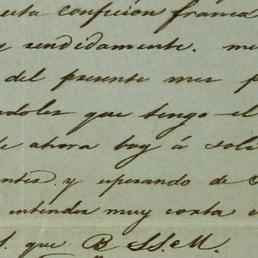 esta confesion franca
y rendidamente. me
del presente mes p
endoles que tengo el
de ahora boy á soli
antes. y esperando de
entender muy corta
S. que B SS. M.